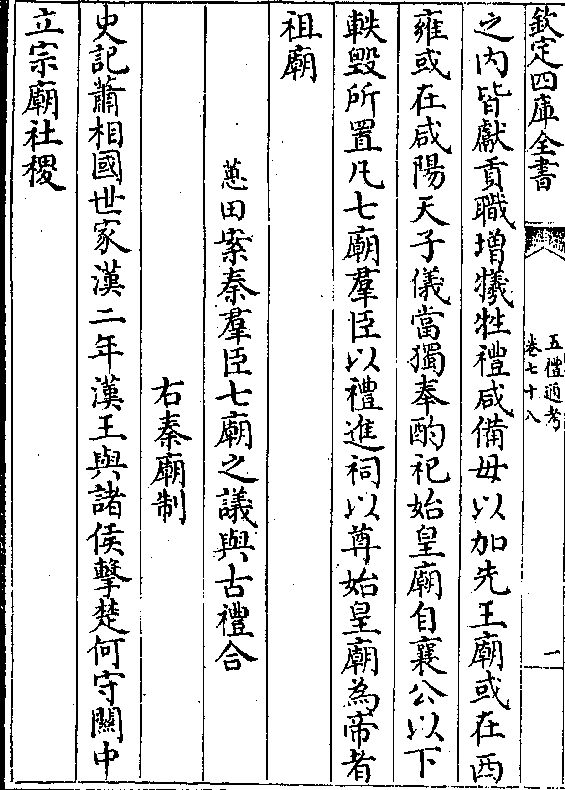 欽定四庫全書
五禮通考
卷七十八
一
之内皆獻貢職増犧牲禮咸備毋以加先王廟或在西
雍或在咸陽天子儀當獨奉酌祀始皇廟自襄公以下
軼毀所置凡七廟羣臣以禮進祠以尊始皇廟為帝者
祖廟
蕙田案秦羣臣七廟之議與古禮合
右秦廟制
史記蕭相國世家漢二年漢王與諸侯擊楚何守闗中
立宗廟社稷